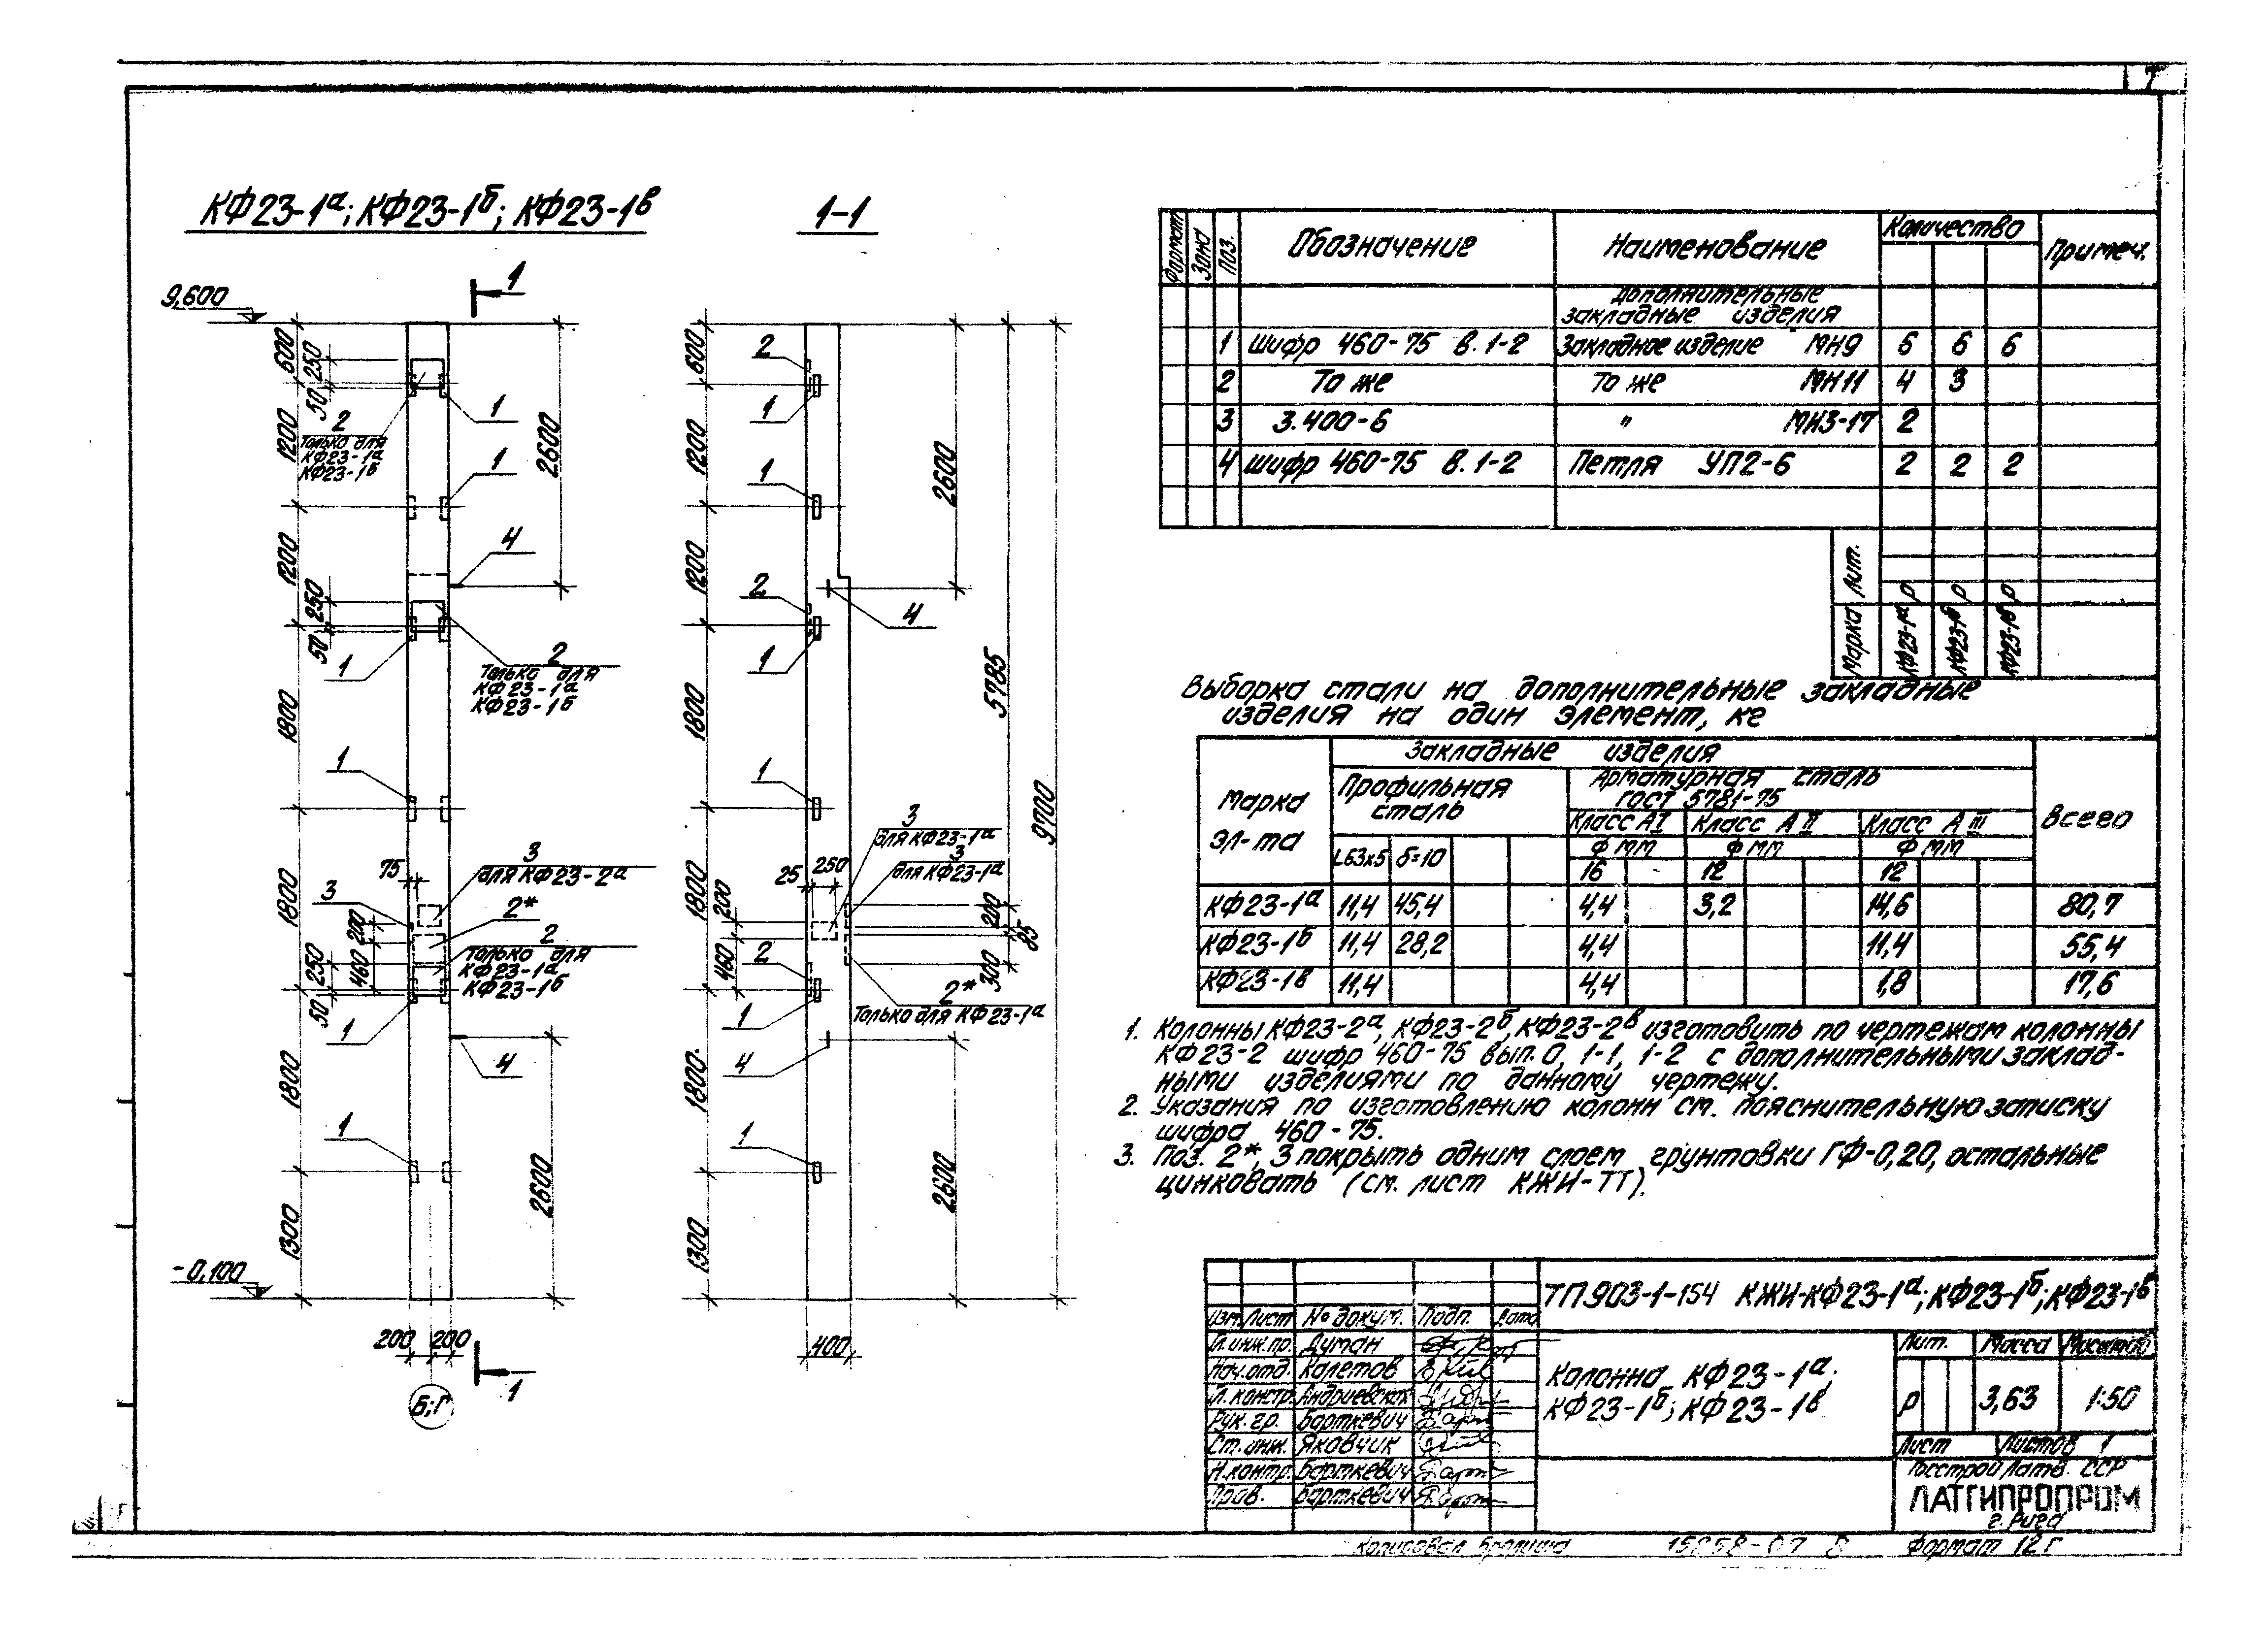 7
КФ23-1а; КФ23-1б; КФ23-1в
1-1
9,600
1
600
250
50
1200
2
только для
КФ23-1а
КФ23-1б
1
1
2600
4
1200
250
50
1
2
только для
КФ23-1а
КФ23-1б
1800
1
75
3
для КФ23-2а
3
2*
1800
200
460
250
50
2
только для
КФ23-1а
КФ23-1б
1
4
1800
1
2600
1300
-0,100
200 200
1
Б;Г
600
2
1
1200
1
2600
1200
2
4
1
5785
1800
1
9700
3
для КФ23-1а
3
для КФ23-1а
25 250
1800
200
460
200
85
300
2
2*
только для КФ23-1а
1
4
1800
1
2600
1300
400
Формат Зона Поз. Обозначение Наименование Количество Примеч.
дополнительные
закладные изделия
1 шифр 460-75 в.1-2 Закладное изделие МН9 6 6 6
2 То же То же МН11 4 3
3 3.400-6 " МН3-17 2
4 шифр 460-75 в.1-2 Петля УП2-6 2 2 2
Лит. р р р
Марка КФ23-1а КФ23-1б КФ23-1в
Выборка стали на дополнительные закладные
изделия на один элемент, кг
Марка эл-та Закладные изделия Всего
Профильная сталь Арматурная сталь
ГОСТ 5781-75
Класс АI Класс АII Класс АIII
L63х5 δ=10 Ф мм Ф мм Ф мм
16 12 12
КФ23-1а 11,4 45,4 4,4 3,2 14,6 80,7
КФ23-1б 11,4 28,2 4,4 11,4 55,4
КФ23-1в 11,4 4,4 1,8 17,6
1. Колонны КФ23-2а, КФ23-2б, КФ23-2в изготовить по чертежам колонны
КФ23-2 шифр 460-75 вып. 0, 1-1, 1-2 с дополнительными заклад-
ными изделиями по данному чертежу.
2. Указания по изготовлению колонн см. пояснительную записку
шифра 460-75.
3. Поз. 2*, 3 покрыть одним слоем грунтовки ГФ-0,20, остальные
цинковать (см. лист КЖИ-ТТ).
ТП 903-1-154 КЖИ-КФ23-1а; КФ23-1б; КФ23-1в
Изм. Лист № докум. Подп. Дата
Гл. инж. пр. Думан
Нач. отд. Калетов
Гл. констр.
Рук. гр. Барткевич
Ст. инж. Яковчик
Н. контр. Барткевич
Пров. Барткевич
Колонна КФ23-1а;
КФ23-1б; КФ23-1в
Лит. Масса Масштаб
р 3,63 1:50
Лист Листов 1
Госстрой Латв. ССР
ЛАТГИПРОПРОМ
г. Рига
Копировал
Формат 12Г